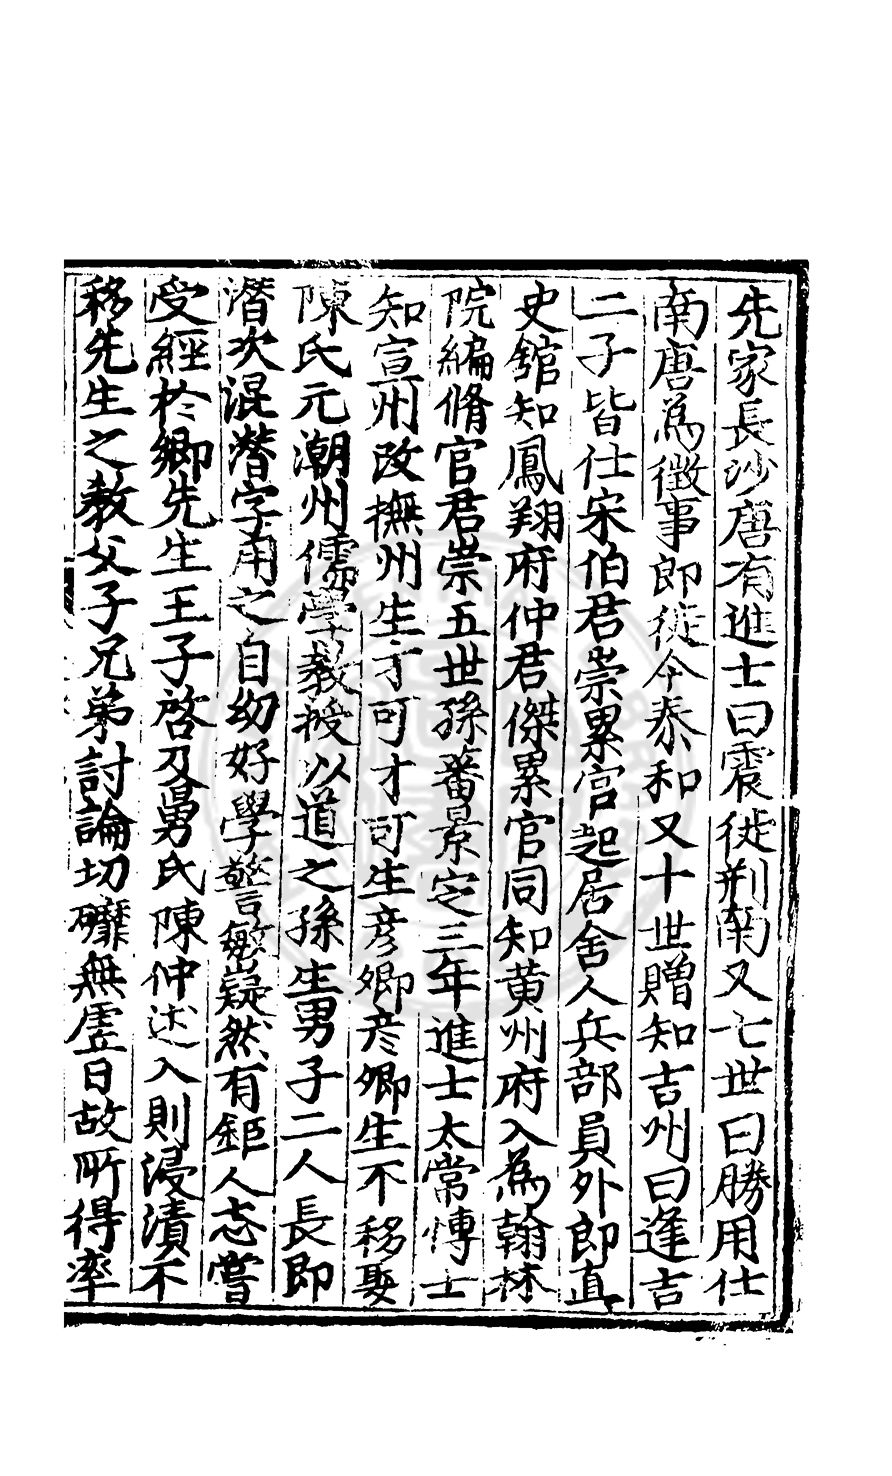 先家長沙唐有進士曰震徙荆南又七世曰勝用仕
南唐為徴事郎徙今泰和又十世贈知吉州曰逢吉
二子皆仕宋伯君崇累官起居舍人兵部員外郎直
史舘知鳳翔府仲君傑累官同知黄州府入為翰林
院編脩官君崇五世孫蕃景定三年進士太常愽士
知宣州改撫州生才可才可生彦卿彦卿生不移娶
陳氏元潮州儒學教授以道之孫生男子二人長即
潛次混潜字甫之自幼好學警敏嶷然有鉅人志嘗
受經於卿先生王子啓及舅氏陳仲述入則浸漬不
移先生之教父子兄弟討論切礳無虚日故所得率